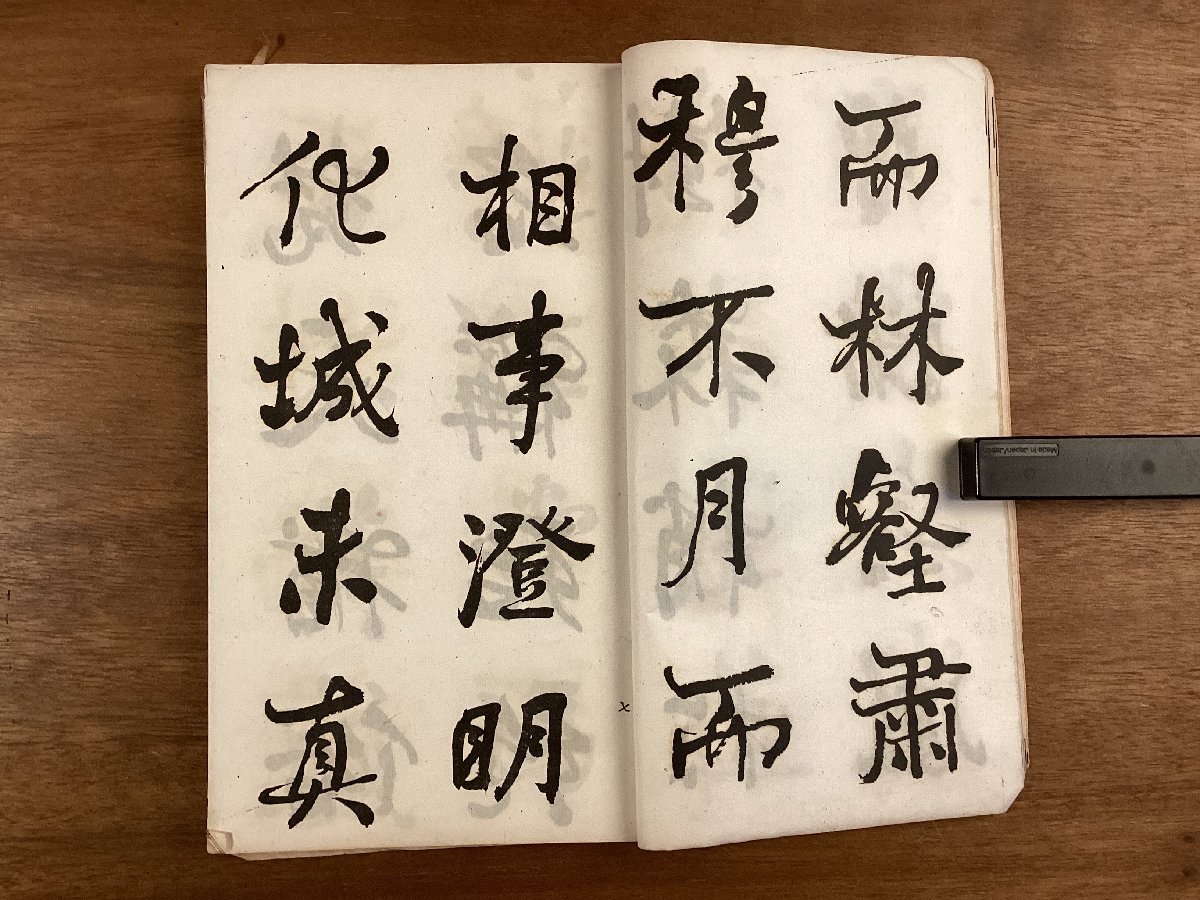 而林壑肅
穆不月而
相事澄明
化城未真
Made in Japan/Japon